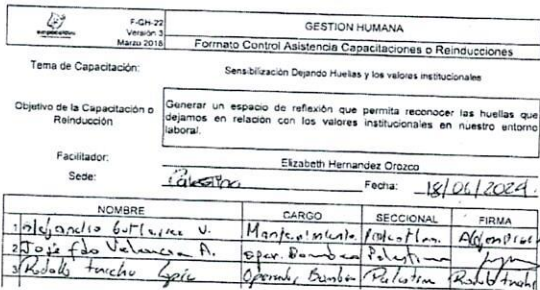 F-GH-22
Versión 3
Marzo 2018
GESTION HUMANA
Formato Control Asistencia Capacitaciones o Reinducciones
Tema de Capacitación: Sensibilización Dejando Huellas y los valores institucionales
Objetivo de la Capacitación o Reinducción
Generar un espacio de reflexión que permita reconocer las huellas que
dejamos en relación con los valores institucionales en nuestro entorno
laboral.
Facilitador: Elizabeth Hernandez Orozco
Sede: Palestina Fecha: 18/06/2024.
NOMBRE CARGO SECCIONAL FIRMA
1 Alejandro Gutierrez V. Mantenimiento
2 Jose fdo Valencia A. oper. Bombeo Palestina
3 Rodolfo Operador Bombeo Palestina Rodolfo